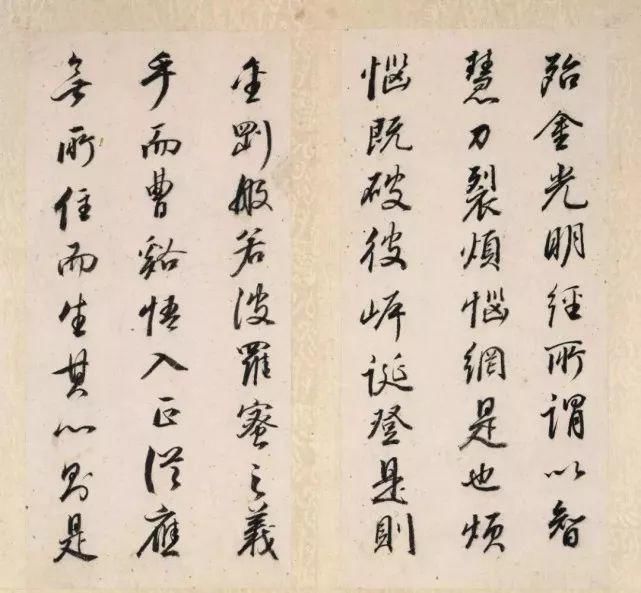 殆金光明經所謂以智
慧刀裂煩惱網是也煩
惱既破彼岸誕登是則
金剛般若波羅蜜之義
乎而曹谿悟入正從應
無所住而生其心則是